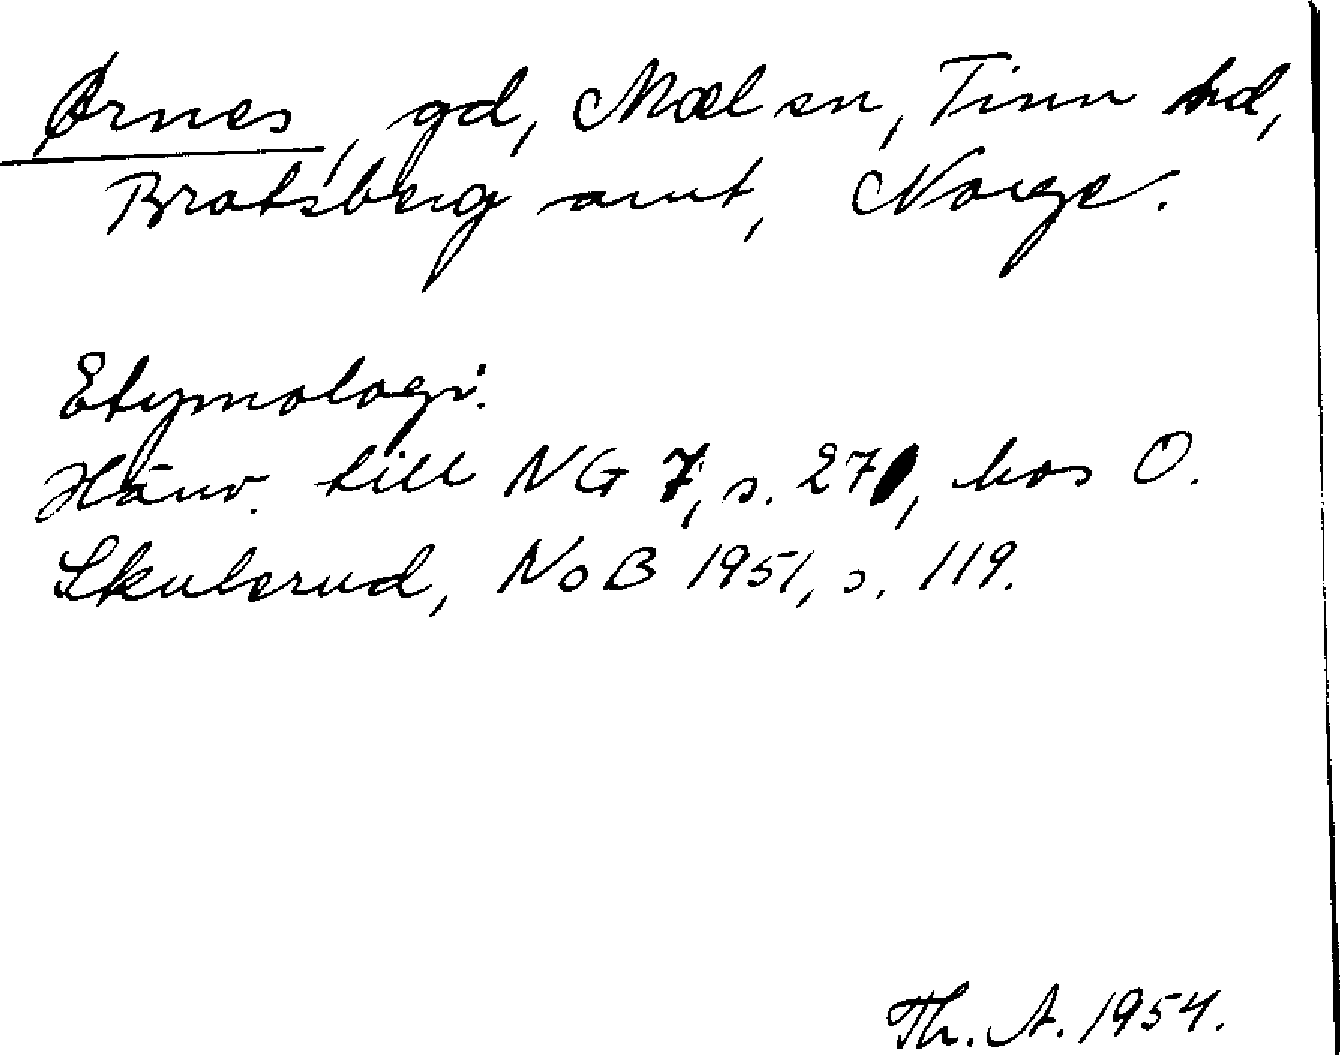 Ørnes, gd, Mæl sn, Tinn hd,
Bratsberg amt, Norge.
Etymologi:
Hänv. till NG 7, s. 270, hos O.
Skulerud, NoB 1951, s. 119.
Th. A. 1954.